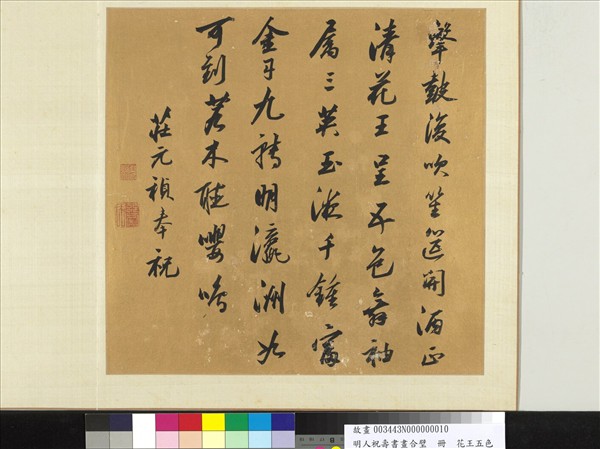 擊鼓復吹笙筵開酒正
清花王呈五色舞袖
屬三英玉液千鍾富
金丹九轉明瀛洲如
可到若木聽嚶鳴
莊元禎奉祝
故畫 003443N000000010
明人祝壽書畫合璧 冊 花王五色